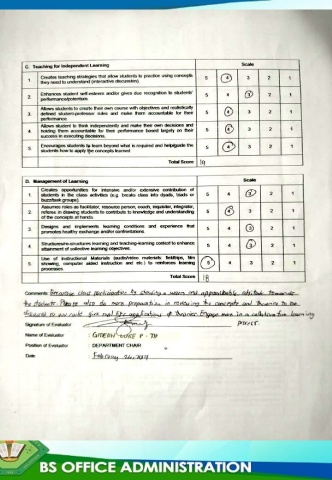 C. Teaching for Independent Learning Scale
1. Creates teaching strategies that allow students to practice using concepts they need to understand (interactive discussion) 5 4 3 2 1
2. Enhances student self-esteem and/or gives due recognition to students' performance/potentials 5 4 3 2 1
3. Allows students to create their own course with objectives and realistically defined student-professor rules and make them accountable for their performance 5 4 3 2 1
4. Allows student to think independently and make their own decisions and holding them accountable for their performance based largely on their success in executing decisions. 5 4 3 2 1
5. Encourages students to learn beyond what is required and help/guide the students how to apply the concepts learned 5 4 3 2 1
Total Score 19
D. Management of Learning Scale
1. Creates opportunities for intensive and/or extensive contribution of students in the class activities (e.g. breaks class into dyads, triads or buzz/task groups). 5 4 3 2 1
2. Assumes roles as facilitator, resource person, coach, inquisitor, integrator, referee in drawing students to contribute to knowledge and understanding of the concepts at hands. 5 4 3 2 1
3. Designs and implements learning conditions and experience that promotes healthy exchange and/or confrontations. 5 4 3 2 1
4. Structures/re-structures learning and teaching-learning context to enhance attainment of collective learning objectives. 5 4 3 2 1
5. Use of Instructional Materials (audio/video materials: fieldtrips, film showing, computer aided instruction and etc.) to reinforces learning processes. 5 4 3 2 1
Total Score 18
Comments: Encourage class participation by showing a warm and approachable attitude towards
the students. Please also do more preparation in reviewing the concepts and theories to be
discussed so you could give real life applications of theories. Engage more in a collaborative learning
process.
Signature of Evaluator :
Name of Evaluator :
Position of Evaluator : DEPARTMENT CHAIR
Date : February 26, 2024
BS OFFICE ADMINISTRATION